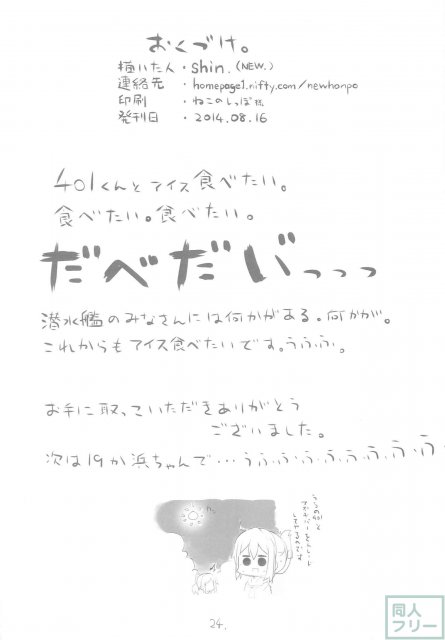 おくづけ。
描いた人・shin.(NEW.)
連絡先・homepage1.nifty.com/newhonpo
印刷・ねこのしっぽ様
発刊日・2014.08.16
401くんとアイス食べたい。
食べたい。食べたい。
だべだいっっっ
潜水艦のみなさんには何かがある。何かが。
これからもアイス食べたいです。うふふ。
お手に取っていただきありがとう
ございました。
次は19か浜ちゃんで…うふふふふふふふ
うちの401と
してやるのです
24.
同人
フリー